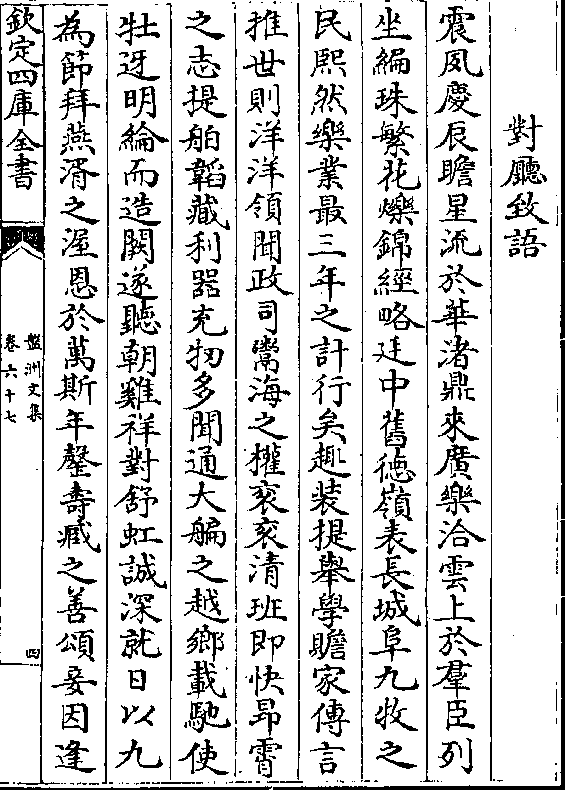 對廳致語
震夙慶辰瞻星流於華渚鼎來廣樂洽雲上於羣臣列
坐編珠繁花爍錦經略廷中舊徳嶺表長城阜九牧之
民熙然樂業最三年之計行矣趣装提舉學贍家傳言
推世則洋洋領聞政司鬻海之㩁衮衮清班即快昂霄
之志提舶韜藏利器充牣多聞通大艑之越鄉載馳使
牡迓明綸而造闕遂聽朝雞祥對舒虹誠深就日以九
為節拜燕湑之渥恩於萬斯年罄壽臧之善頌妾因逢
欽定四庫全書
盤洲文集
卷六十七
四